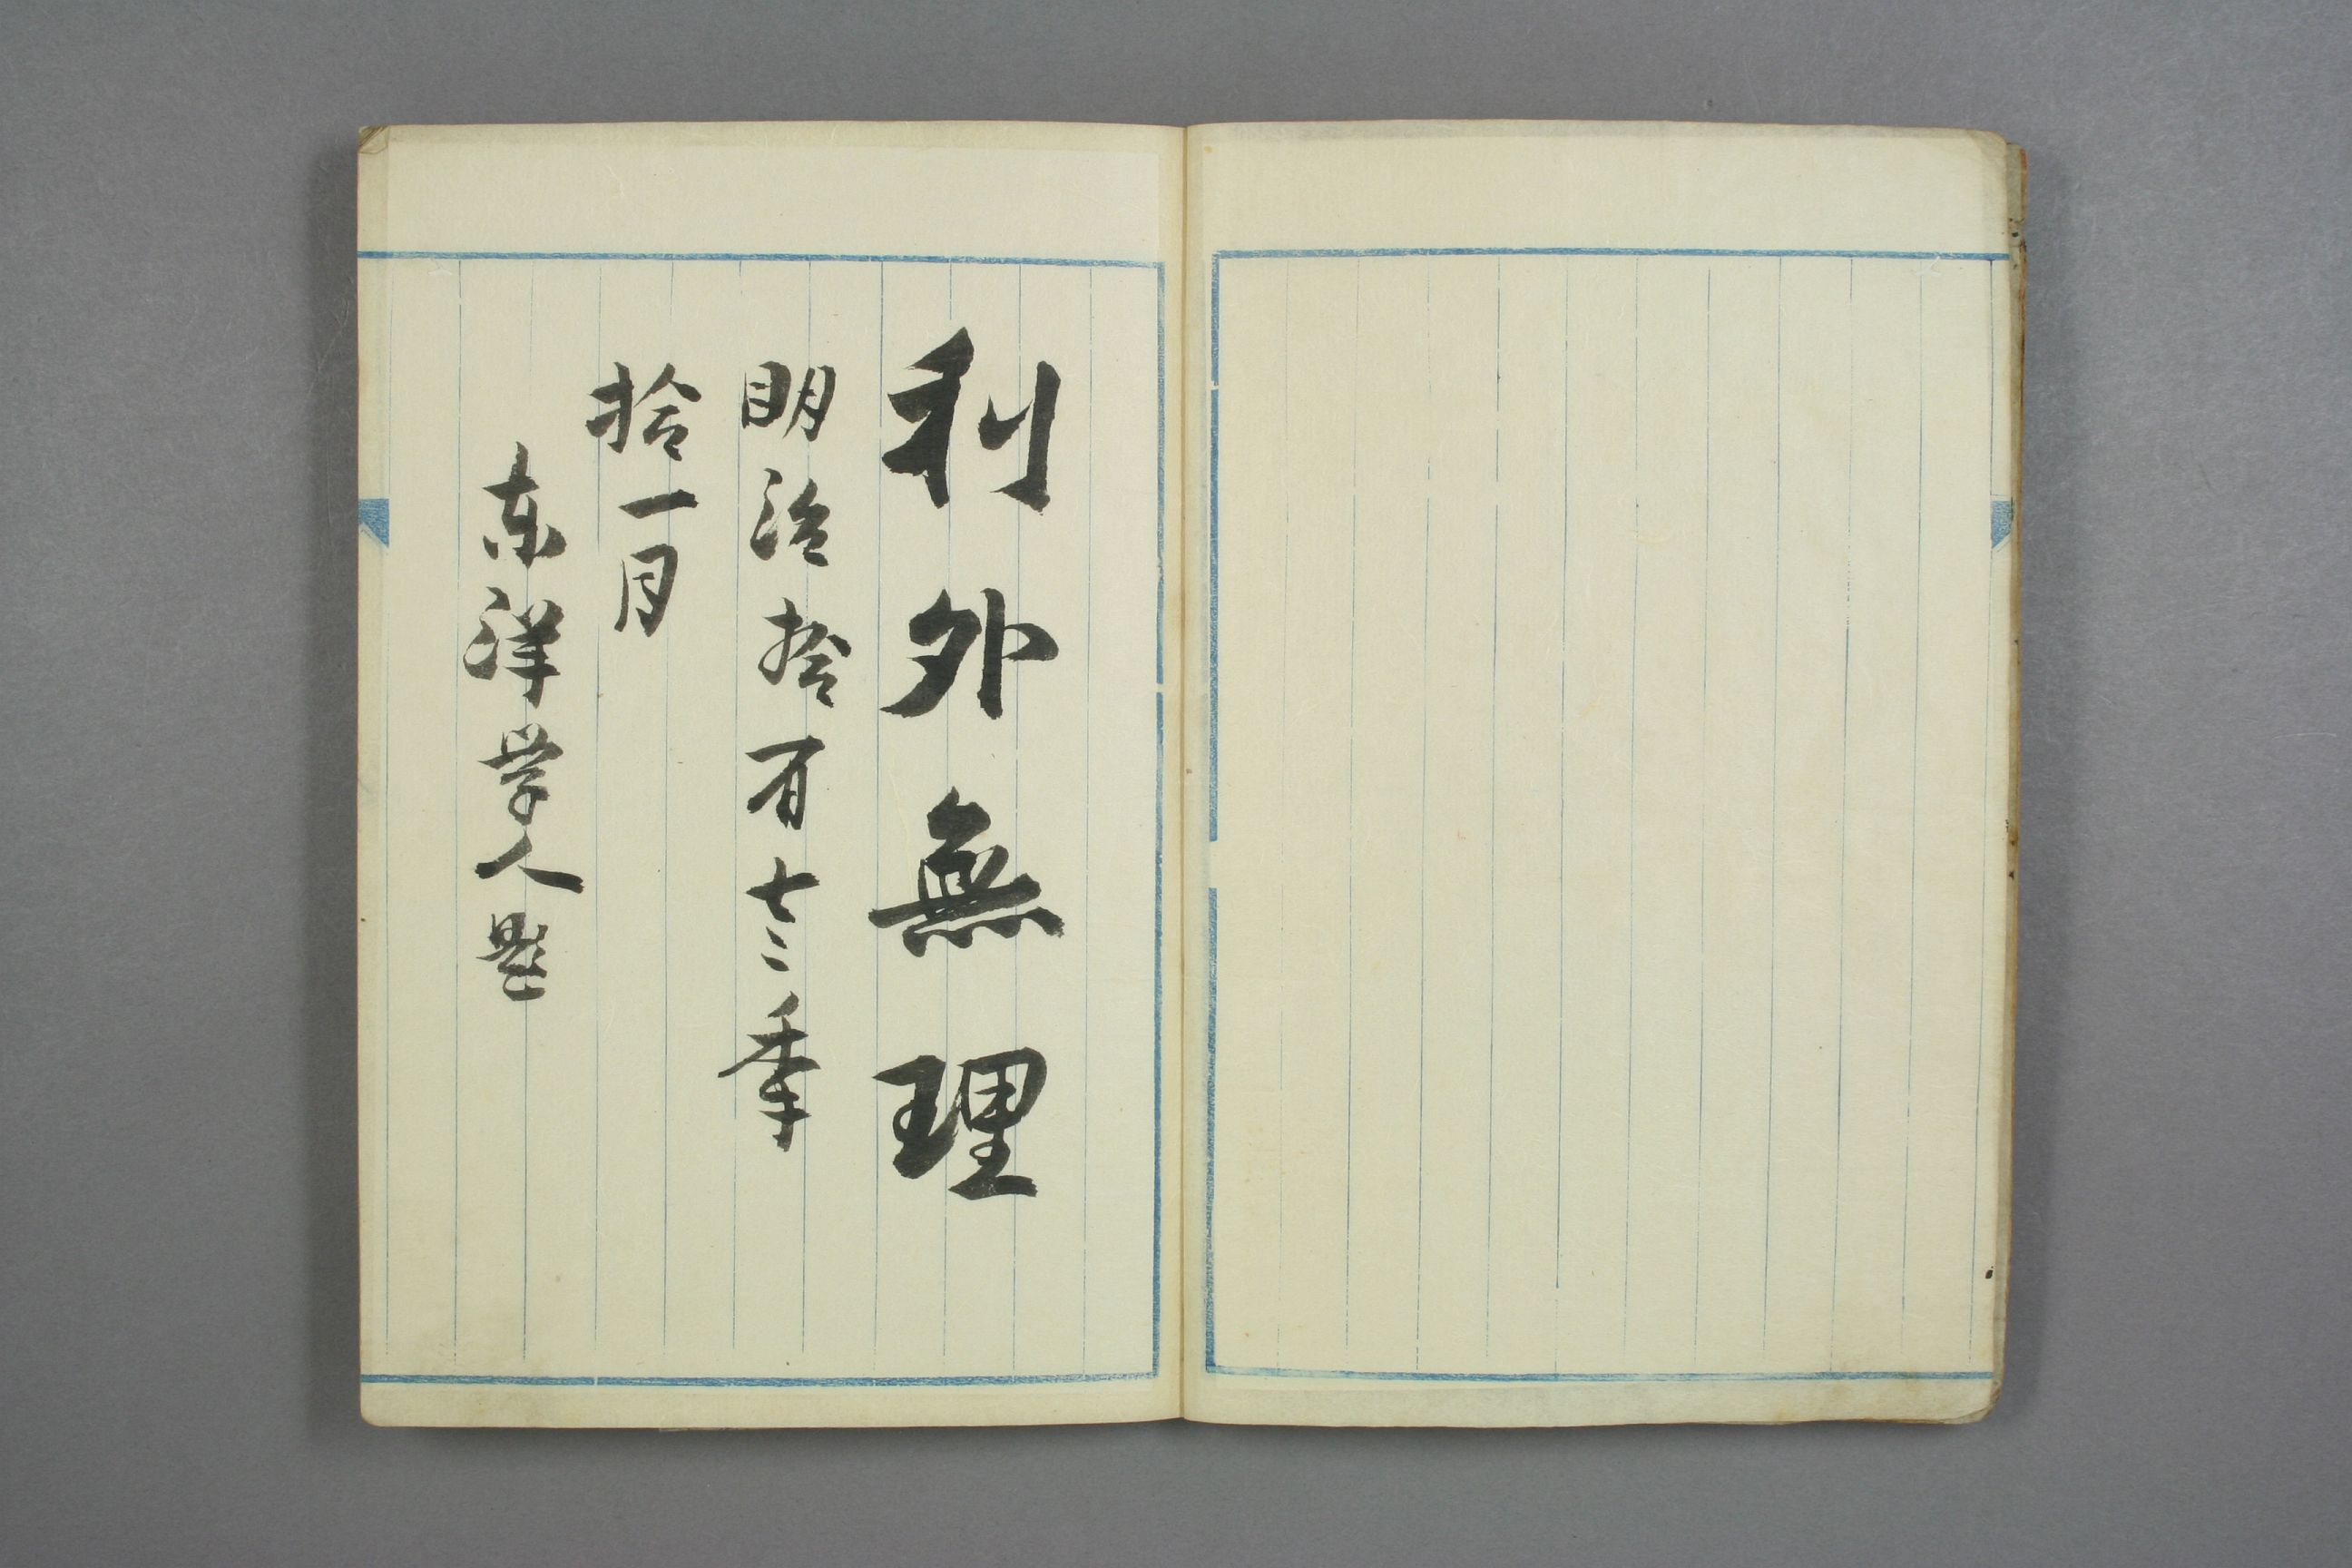 利外無理
眀治拾有七秊
拾一月
東洋学人題